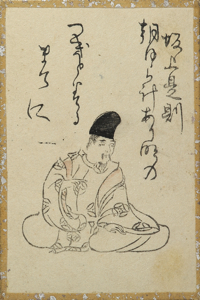 坂上是則
朝ほらけあり明の
月とみる
まてに